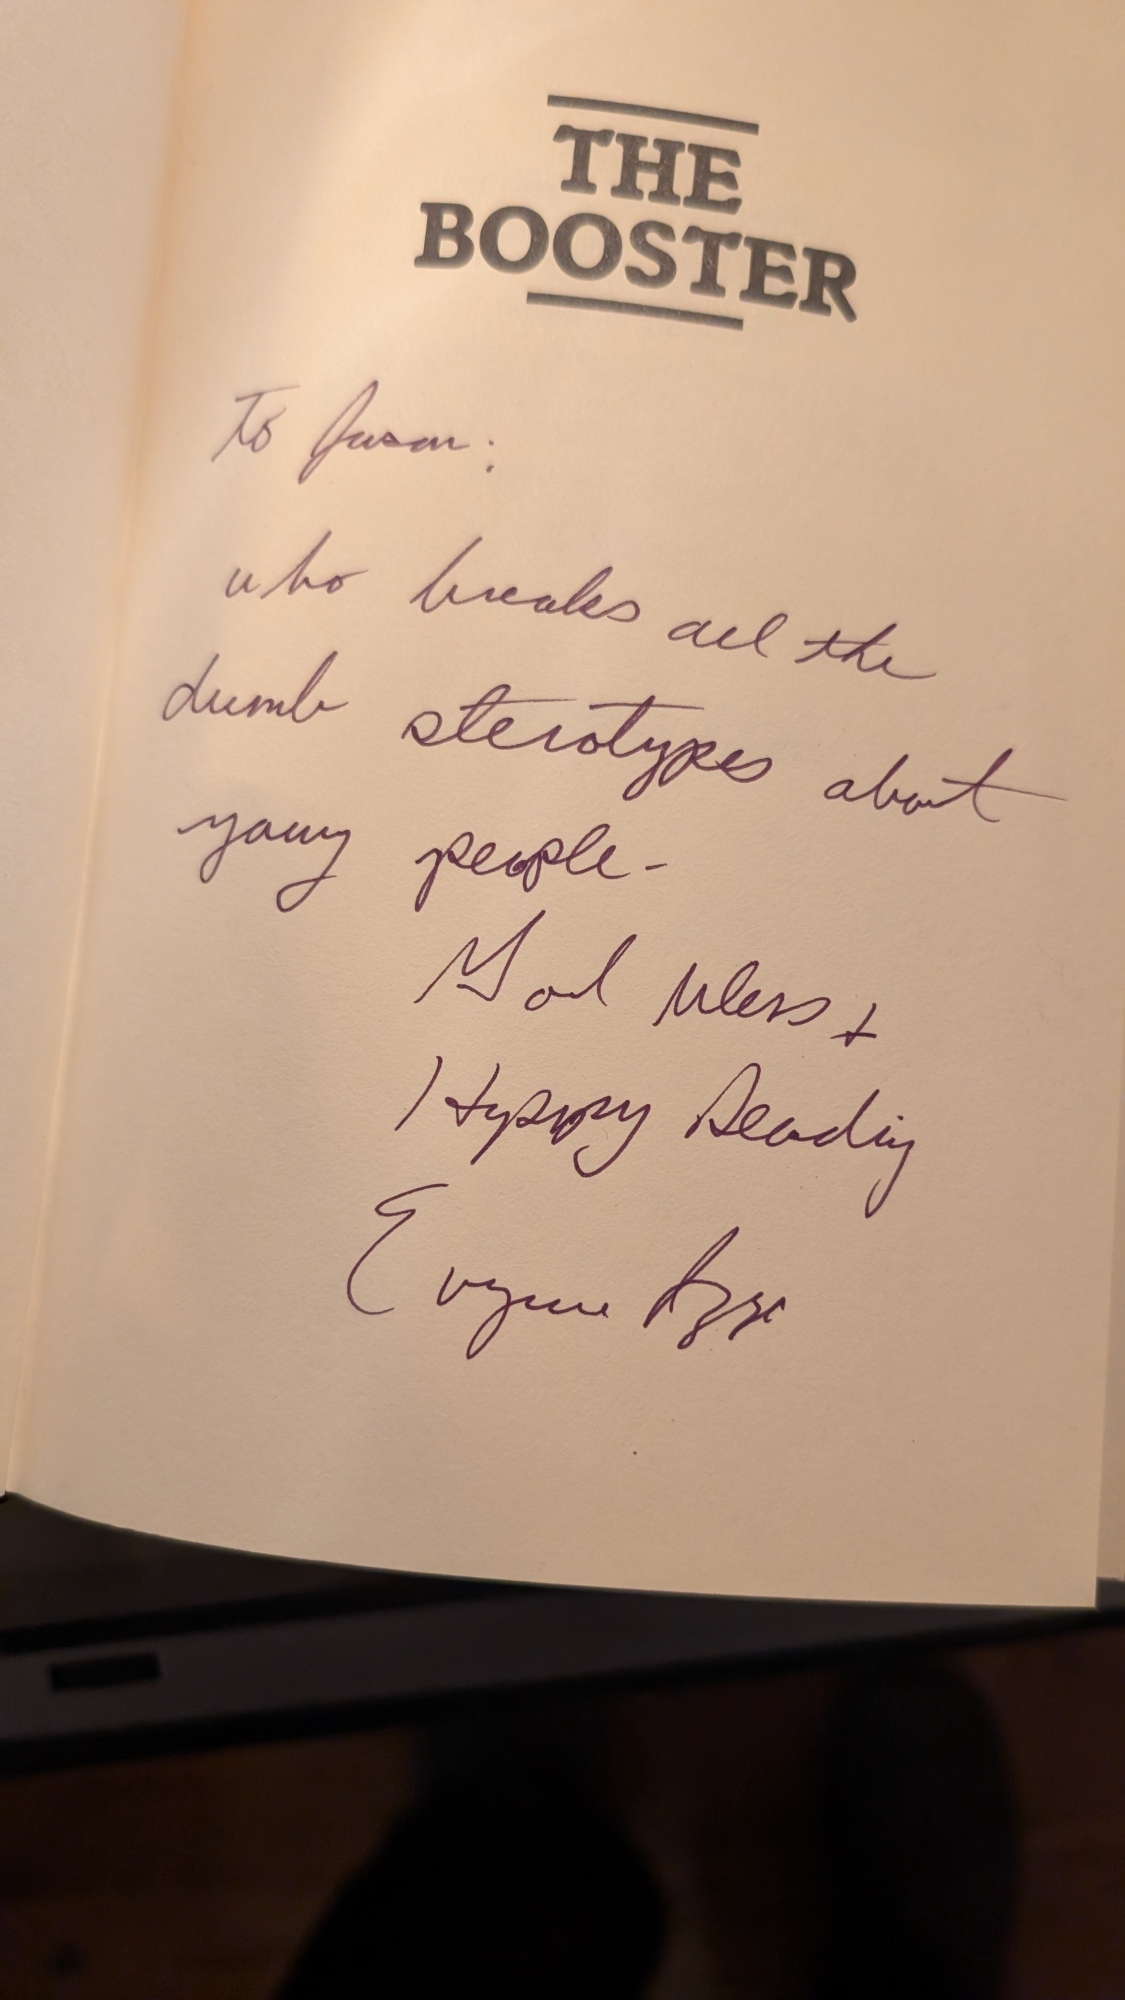 THE
BOOSTER
To Jason:
who breaks all the
dumb sterotypes about
young people-
God bless +
Happy Reading
Eugene Izzi